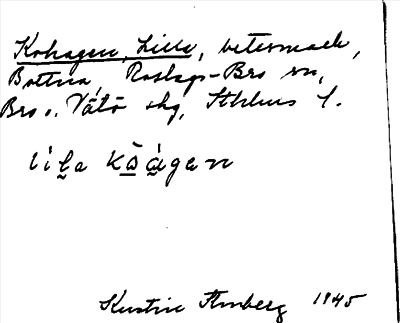 Kohagen, Lilla, betesmark,
Bottna, Roslags-Bro sn,
Bro o. Vätö skg, Sthlms l.
lìl̯a kò̱à̱gen
Kerstin Arnberg 1945